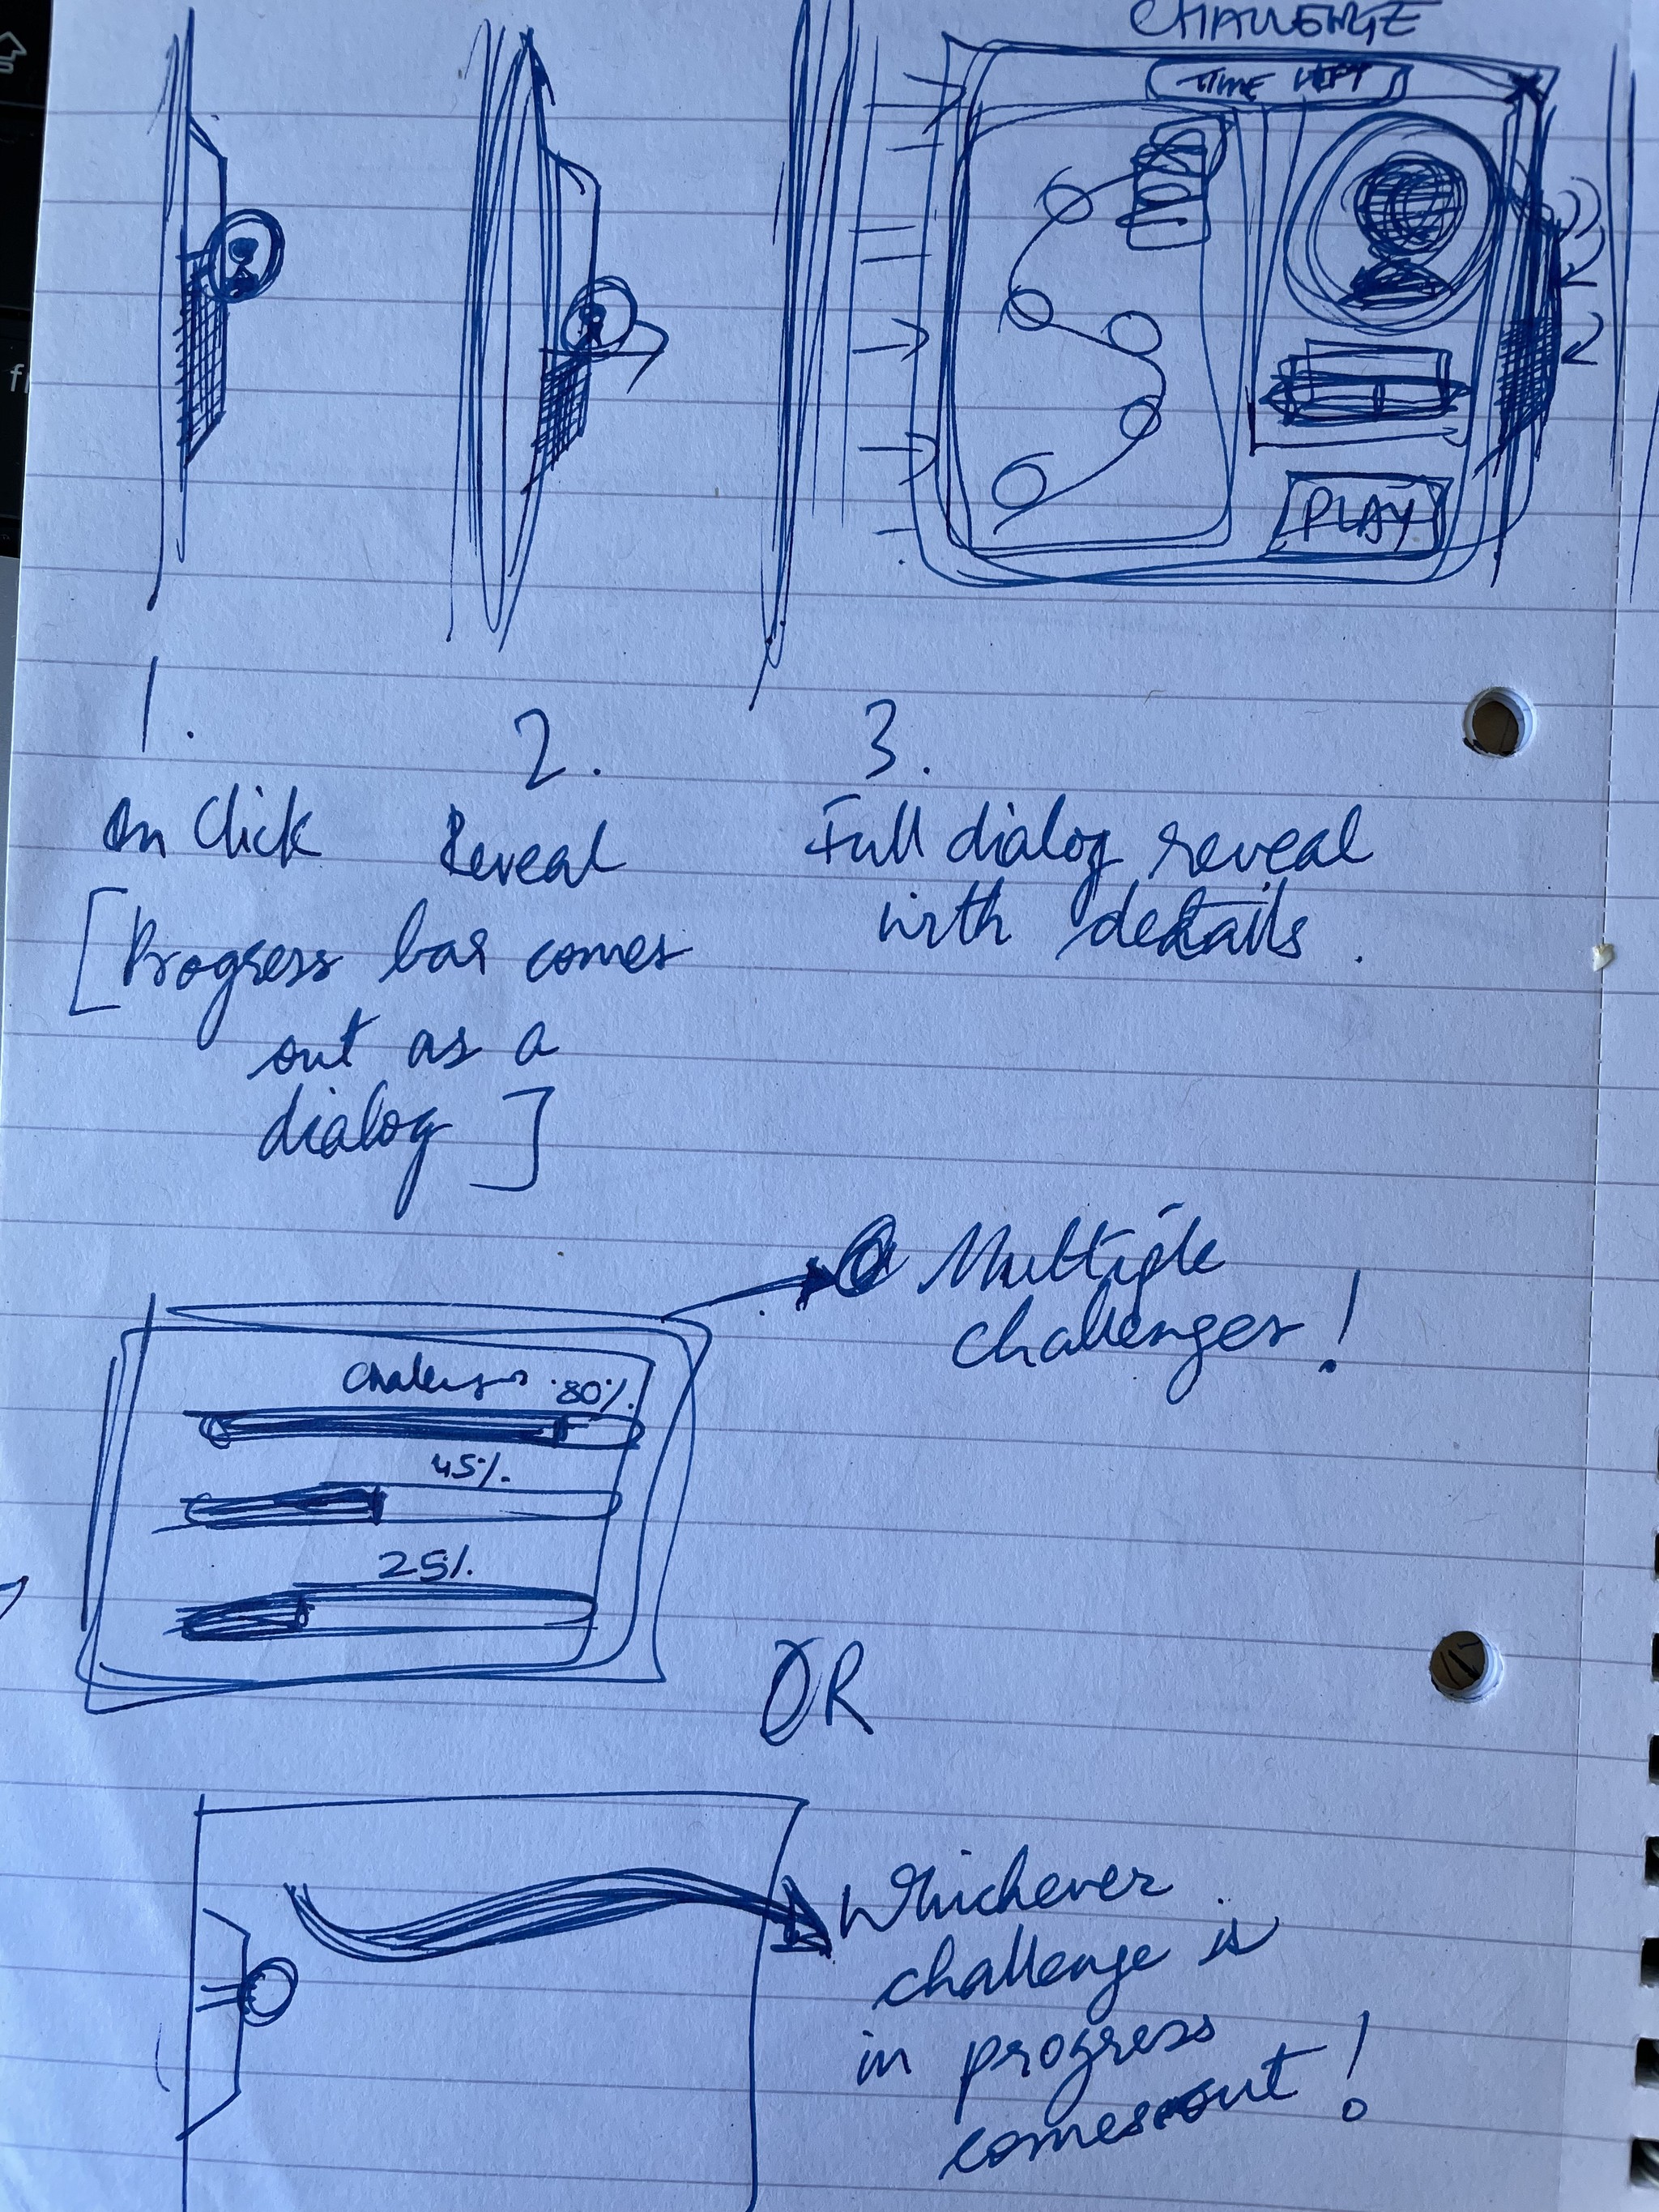 CHALLENGE
TIME LEFT
X
PLAY
1.
2.
3.
On Click
Reveal
Full dialog reveal
with details.
[Progress bar comes
out as a
dialog]
Multiple
challenges!
80%
45%
25%
OR
Whichever
challenge is
in progress
comes out!